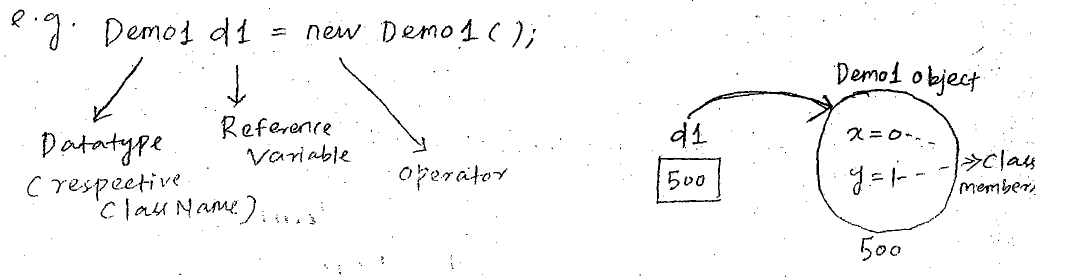 e.g. Demo1 d1 = new Demo1();
Datatype
(respective
Class Name)
Reference
Variable
Operator
Demo1 object
d1
500
x=0
y=1
class
members
500